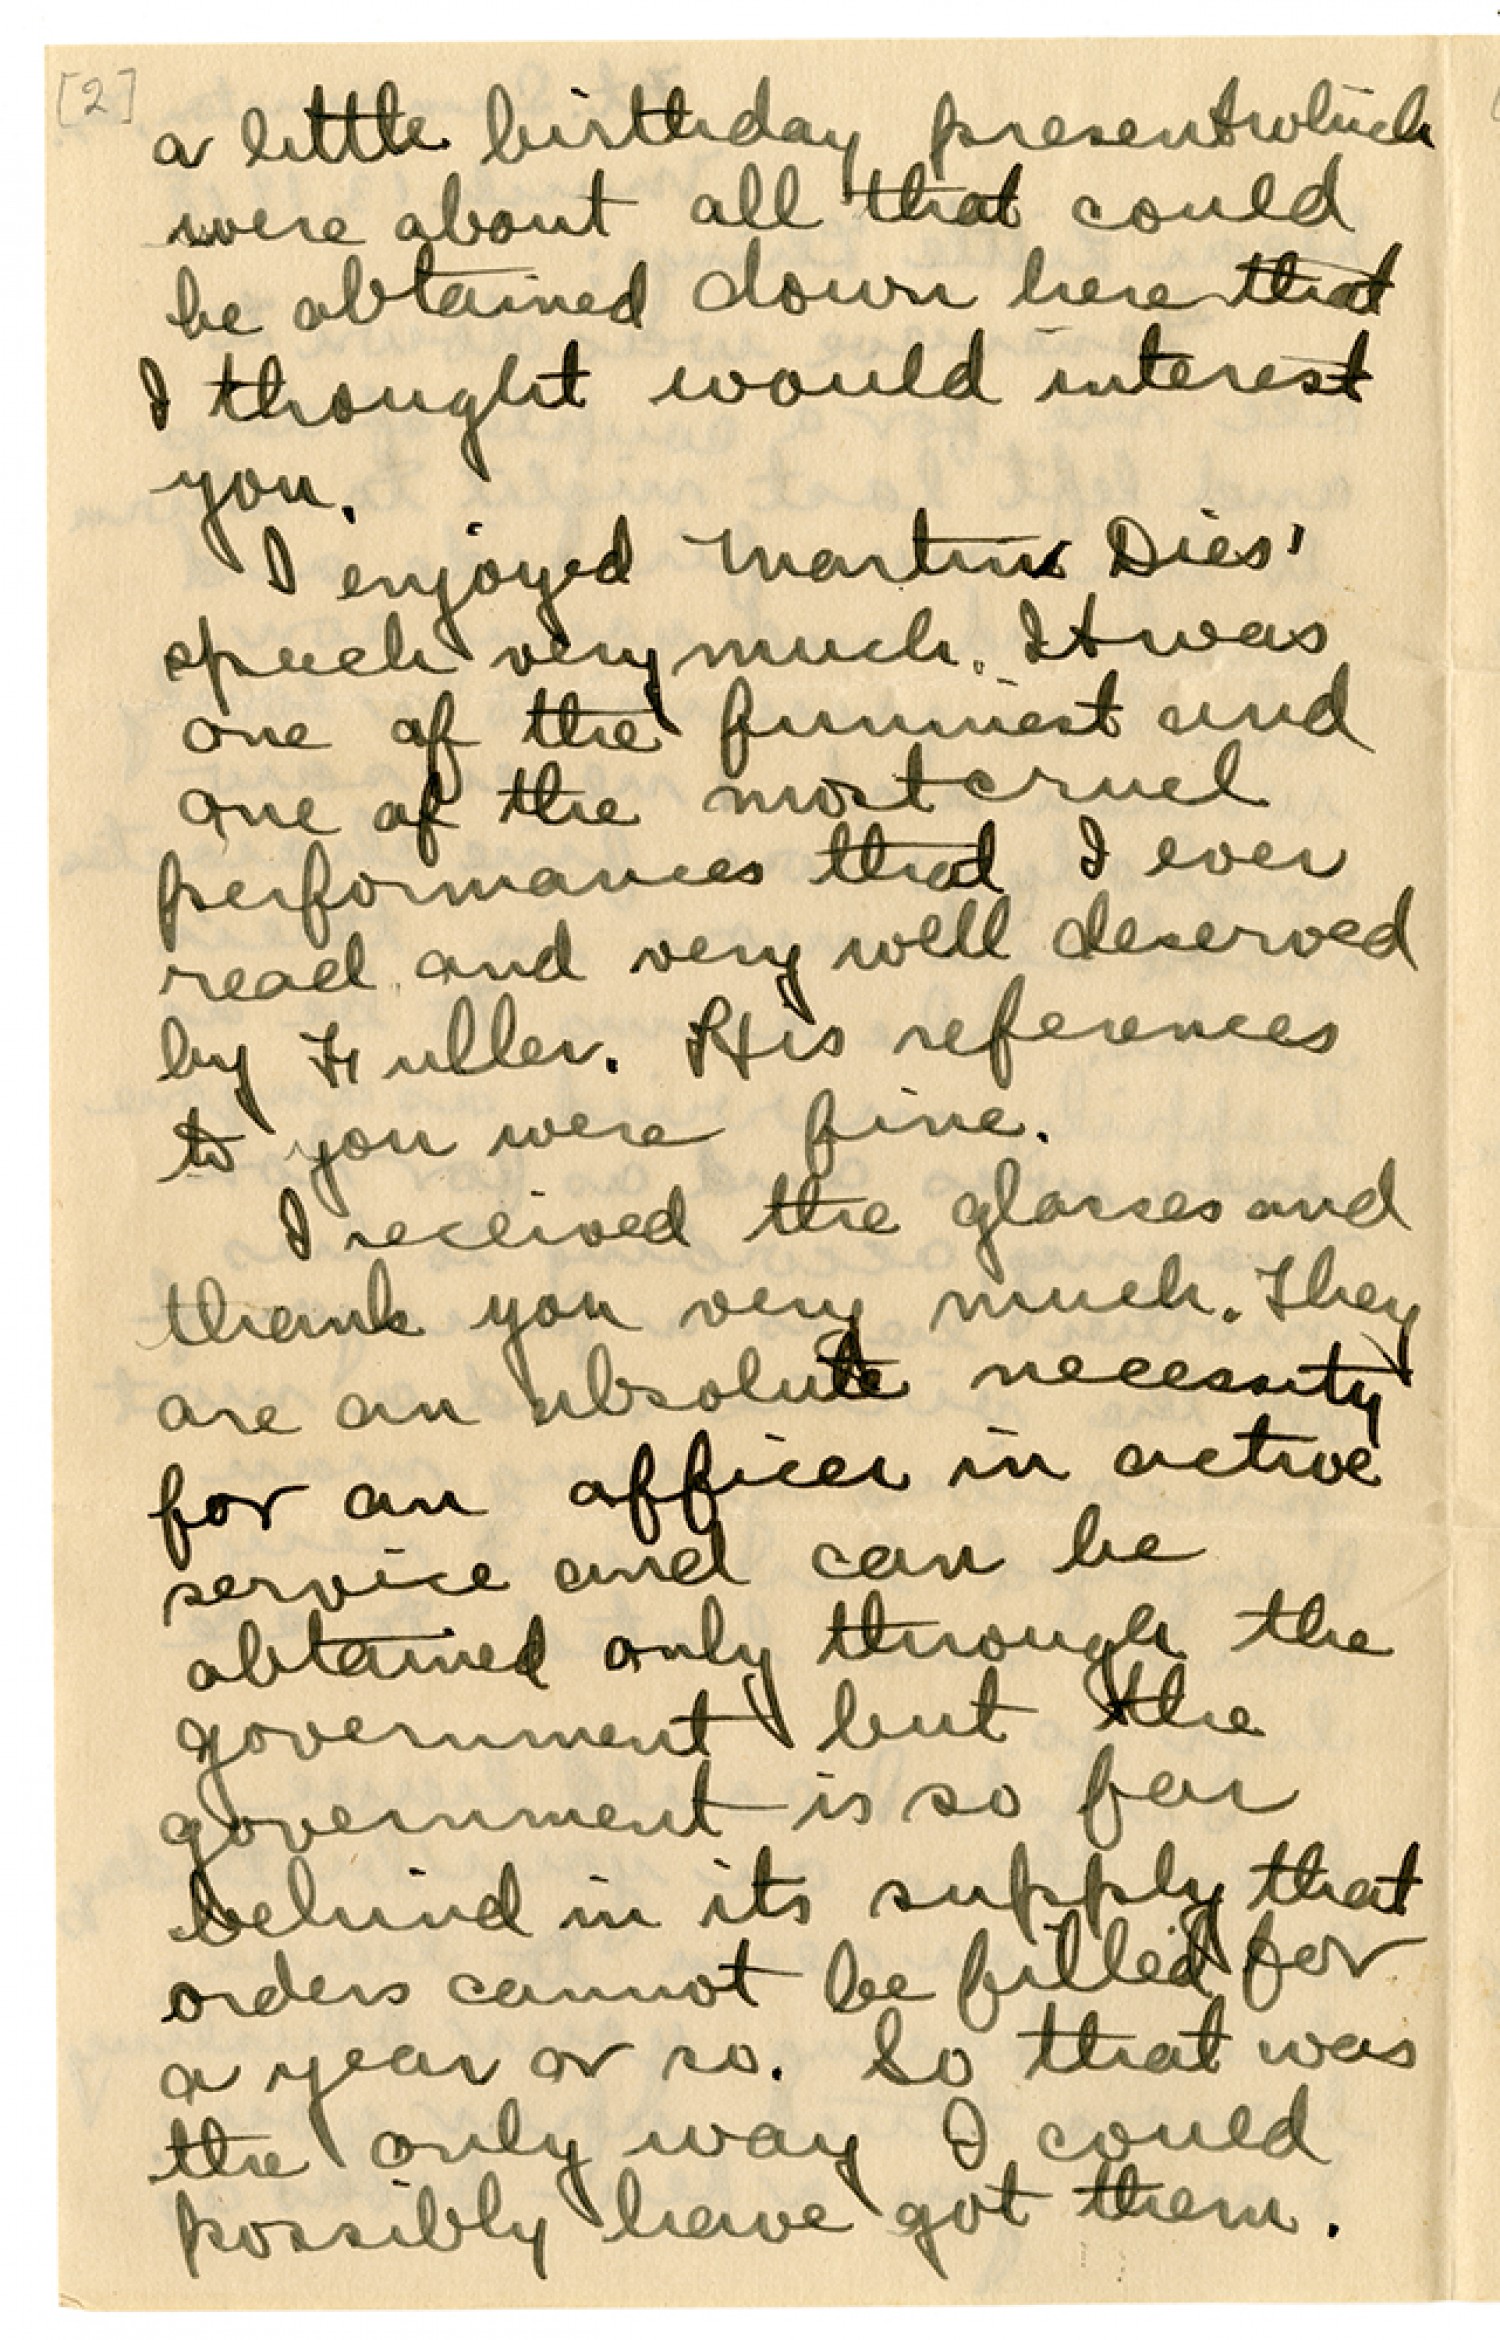 [2]
a little birthday present which
were about all that could
be obtained down here that
I thought would interest
you.
I enjoyed Martin Dies'
speech very much. It was
one of the funniest and
one of the most cruel
performances that I ever
read and very well deserved
by Fuller. His references
to you were fine.
I received the glasses and
thank you very much. They
are an absolute necessity
for an officer in active
service and can be
obtained only through the
government but the
government is so far
behind in its supply that
orders cannot be filled for
a year or so. So that was
the only way I could
possibly have got them.